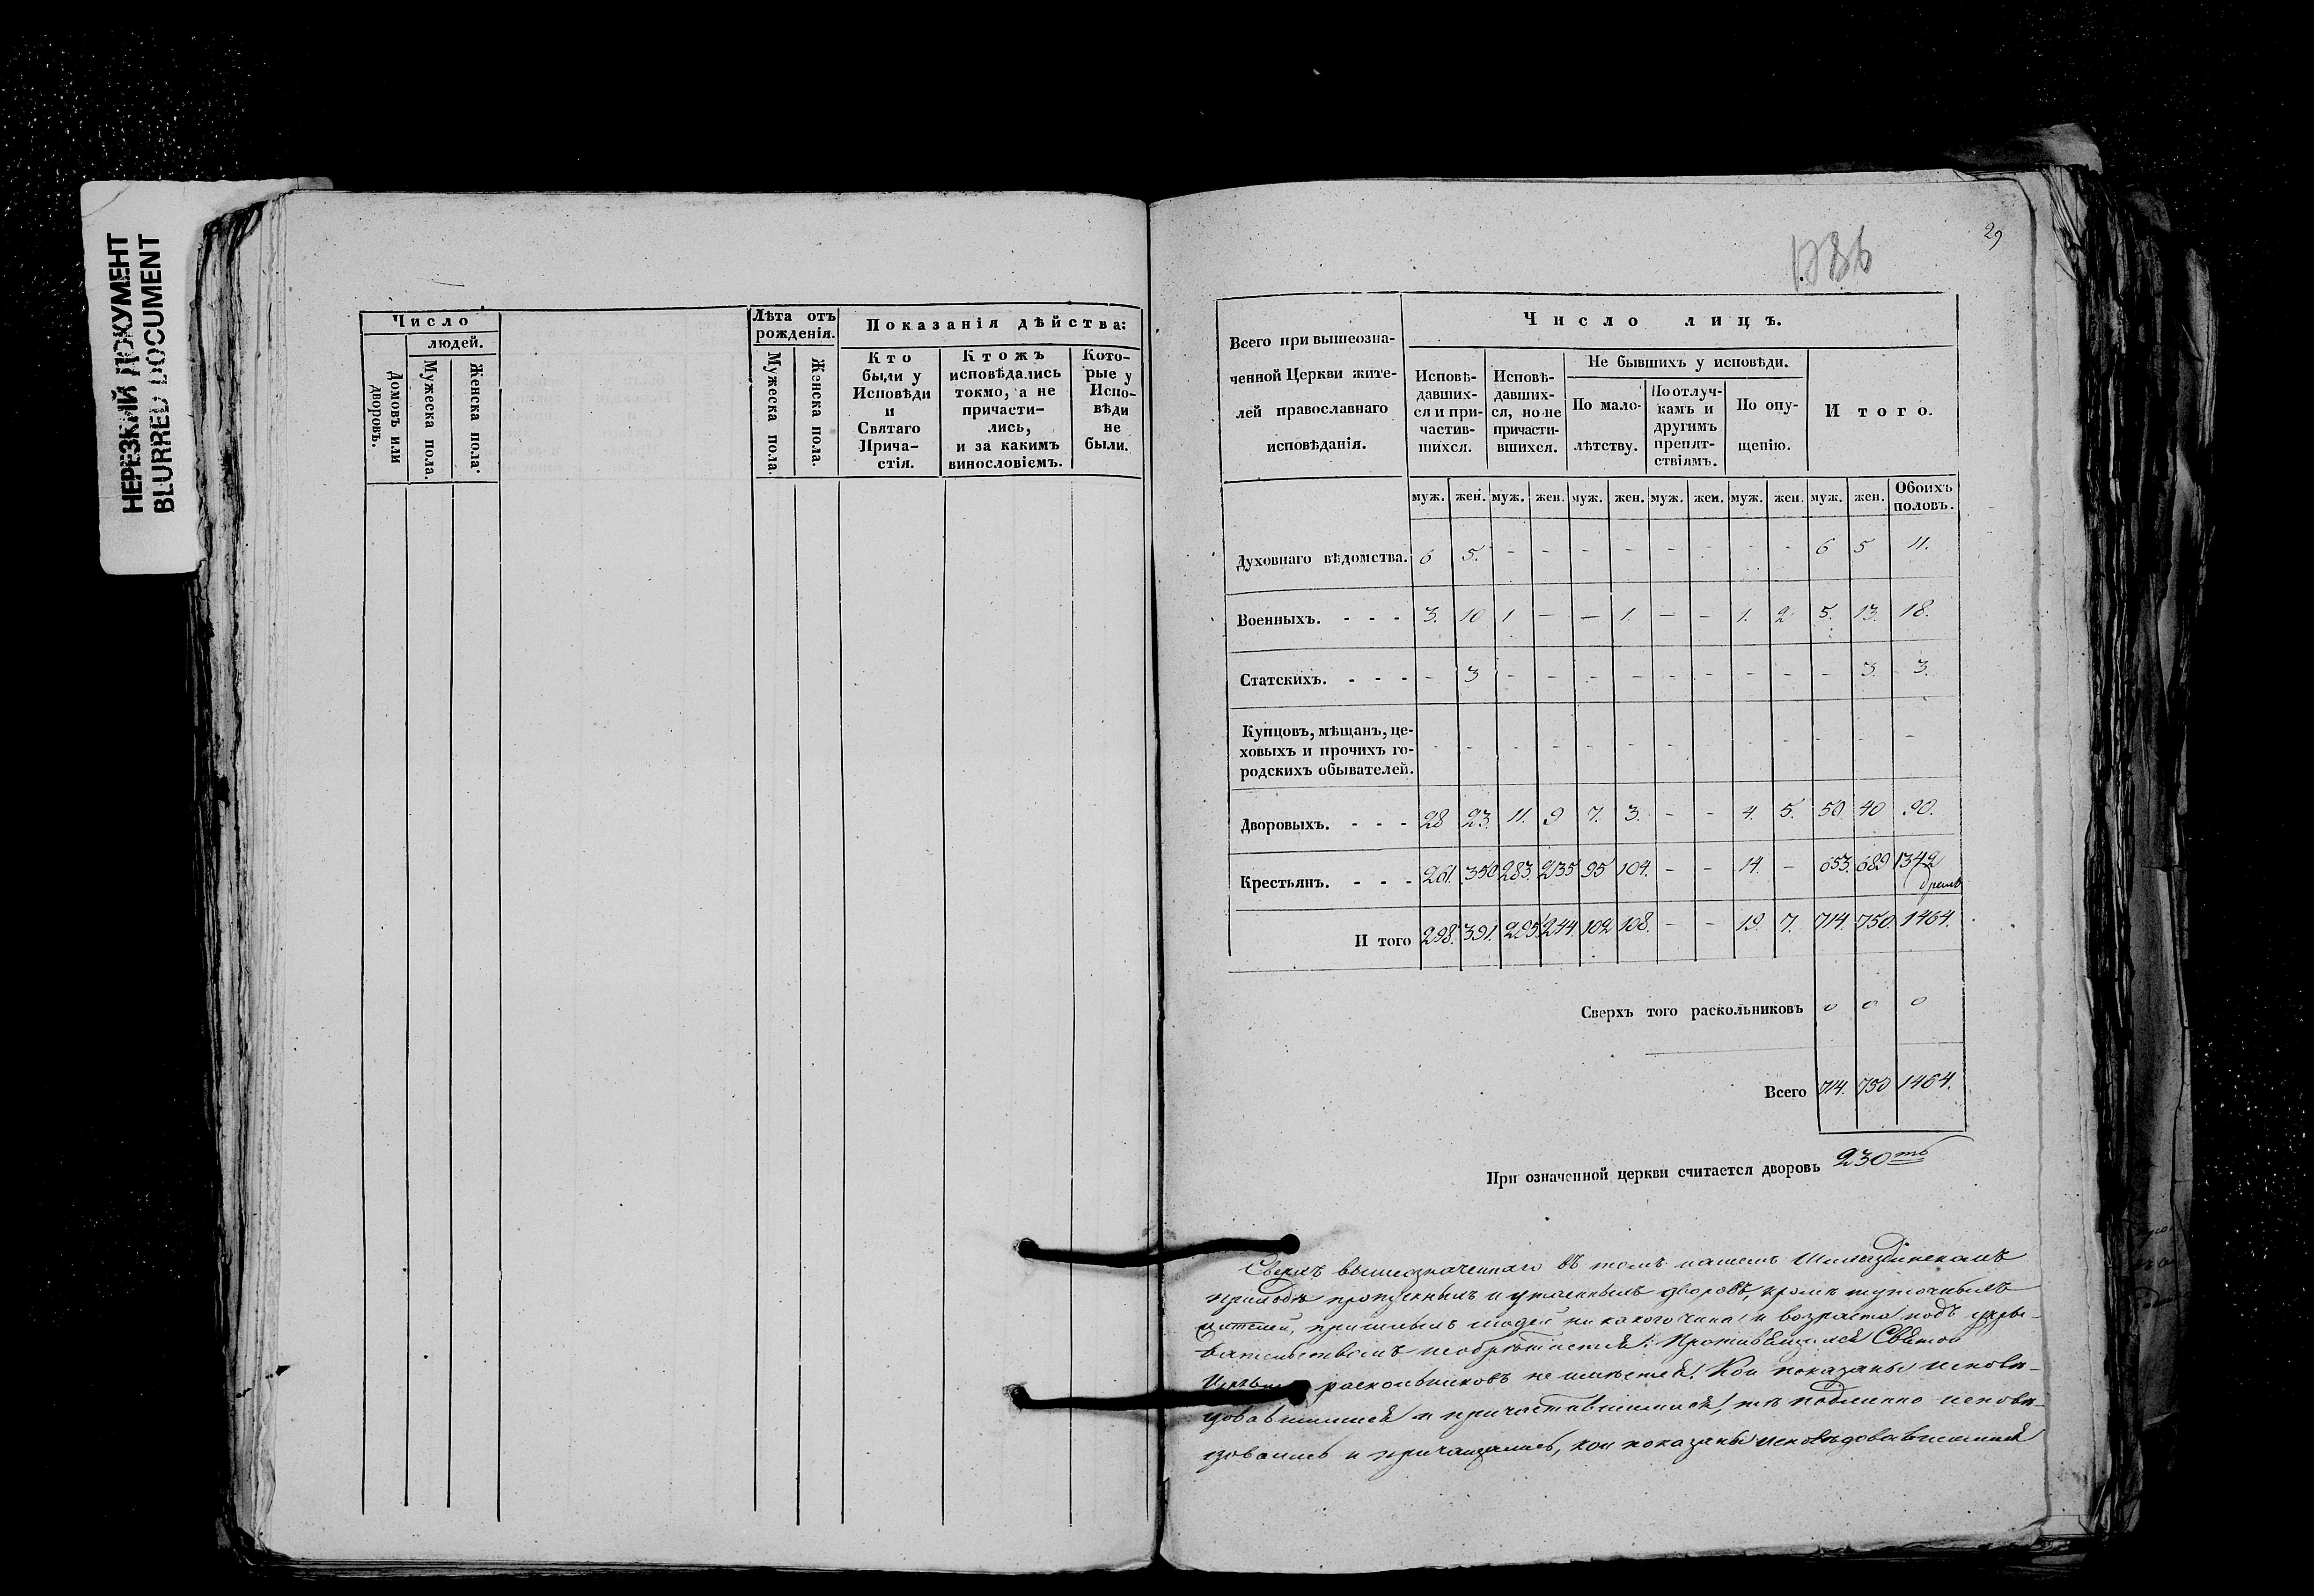 НЕРЕЗКИЙ ДОКУМЕНТ
BLURRED DOCUMENT
Число
людей.
Домовъ или дворовъ.
Мужеска пола.
Женска пола.
Лѣта отъ рожденія.
Мужеска пола.
Женска пола.
Показанія дѣйства:
Кто были у Исповѣди и Святаго Причастія.
Ктожъ исповѣдались токмо, а не причастились, и за какимъ винословіемъ.
Которые у Исповѣди не были.
29
Всего при вышеозна-
ченной Церкви жите-
лей православнаго
исповѣданія.
Число лицъ.
Исповѣ-
давших-
ся и при-
частив-
шихся.
Исповѣ-
давших-
ся, но не
причасти-
вшихся.
Не бывшихъ у исповѣди.
По мало-
лѣтству.
По отлуч-
камъ и
другимъ
препят-
ствіямъ.
По опу-
щенію.
Итого.
муж. жен. муж. жен. муж. жен. муж. жен. муж. жен. муж. жен. Обоихъ половъ.
Духовнаго вѣдомства. 6 5. - - - - - - - - 6 5 11.
Военныхъ. - - - 3. 10 1 - - 1. - - 1. 2 5. 13. 18.
Статскихъ. - - - - 3 - - - - - - - - - 3. 3.
Купцовъ, мѣщанъ, це-
ховыхъ и прочихъ го-
родскихъ обывателей. - - - - - - - - - - - - -
Дворовыхъ. - - - 28 23. 11. 9 7. 3. - - 4. 5. 50. 40 90.
Крестьянъ. - - - 261. 350 283. 235 95 104. - - 14. - 653. 689 1342
Итого 298. 391. 295. 244. 102 108. - - 19. 7. 714. 750. 1464.
Сверхъ того раскольниковъ 0 0 0
Всего 714. 750 1464.
При означенной церкви считается дворовъ 230ть
Сверхъ вышеозначеннаго въ томъ нашемъ
приходѣ пропускныхъ и утаенныхъ дворовъ, кромѣ
жителей, пришлыхъ людей никакого чина и возраста подъ укры-
вательствомъ необрѣтается. Противящихся Святой
Церкви раскольниковъ не имѣется. Кои показаны исповѣ-
довавшимися и причастившимися, тѣ подлинно исповѣ-
довались и причащались, кои показаны исповѣдовавшимися